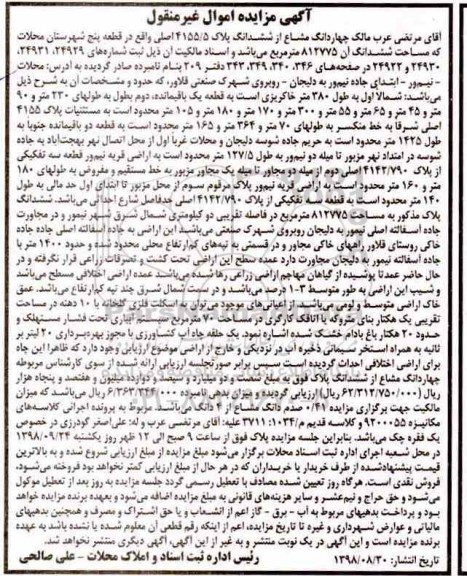 آگهی مزایده اموال غیرمنقول
آقای مرتضی عرب مالک چهاردانگ مشاع از ششدانگ پلاک ۴۱۵۵/۵ اصلی واقع در قطعه پنج شهرستان محلات
که مساحت ششدانگ آن ۸۱۲۷۷۵ مترمربع می‌باشد و اسناد مالکیت آن ذیل ثبت شماره‌های ۲۴۹۲۹، ۲۴۹۳۱،
۲۴۹۳۰ و ۲۴۹۲۲ در صفحه‌های ۳۴۶، ۳۴۰، ۳۴۹، ۳۴۳ دفتر ۲۰۹ بنام نامبرده صادر گردیده به آدرس: محلات
- نیم‌ور - ابتدای جاده نیم‌ور به دلیجان - روبروی شهرک صنعتی قلاور، که حدود و مشخصات آن به شرح ذیل
می‌باشد: شمالاً اول به طول ۳۸۰ متر خاکریزی است به قطعه یک باقیمانده، دوم بطول به طولهای ۲۳۰ متر و ۹۰
متر و ۴۵ متر و ۶۵ متر و ۵۵ متر و ۳۰۰ متر و ۱۷۰ متر و ۱۸۰ متر و ۱۰۵ متر محدود است به مستثنیات پلاک ۴۱۵۵
اصلی شرقاً به خط منکسر به طولهای ۷۰ متر و ۳۶۴ متر و ۱۶۵ متر محدود است به قطعه دو باقیمانده جنوباً به
طول ۱۴۲۵ متر محدود است به حریم جاده شوسه دلیجان و محلات غرباً اول از محل اتصال نهر بهجت‌آباد به جاده
شوسه در امتداد نهر مزبور تا میله دو نیم‌ور به طول ۱۲۷/۵ متر محدود است به اراضی قریه نیم‌ور قطعه سه تفکیکی
از پلاک ۴۱۴۲/۷۹۰ اصلی دوم از میله دو مجاور تا میله یک مجاور مزبور به خط مستقیم و مفروض به طولهای ۱۸۰
متر و ۱۶۰ متر محدود است به اراضی قریه نیم‌ور پلاک مرقوم سوم از محل مزبور تا ابتدای اول حد مالی به طول
۱۴۰ متر محدود است به قطعه سه تفکیکی از پلاک ۴۱۴۲/۷۹۰ اصلی حدفاصل شارع احداثی می‌باشد. ششدانگ
پلاک مذکور به مساحت ۸۱۲۷۷۵ مترمربع در فاصله تقریبی دو کیلومتری شمال شرق شهر نیمور و در مجاورت
جاده آسفالته اصلی نیمور به دلیجان روبروی شهرک صنعتی می‌باشد این اراضی به جاده آسفالته اصلی جاده جاده
خاکی روستای قلاور راههای خاکی مجاور و در قسمتی به تپه‌های کم‌ارتفاع محلی محدود شده و حدود ۱۴۰۰ متر با
جاده آسفالته نیمور به دلیجان مجاورت دارد عمده سطح این اراضی تحت کشت و تصرفات زراعی قرار نگرفته و در
حال حاضر عمدتاً پوشیده از گیاهان مهاجم اراضی زراعی رها شده می‌باشد عمده اراضی اختلافی مسطح می‌باشد
و شیب این اراضی به طور متوسط ۳-۱ درصد می‌باشد و در سمت شمال شرق چند تپه کم‌ارتفاع می‌باشد. عمق
خاک اراضی متوسط و لومی می‌باشد از اعیانی‌های موجود می‌توان به اسکلت فلزی گلخانه با ۱۰ دهنه در مساحت
تقریبی یک هکتار بنای متروکه با اتاقک کارگری در مساحت ۷۰ مترمربع سیستم آبیاری تحت فشار مستهلک و
حدود ۲۰ هکتار باغ بادام خشک شده اشاره نمود. یک حلقه چاه آب کشاورزی با مجوز بهره‌برداری ۲۰ لیتر بر
ثانیه به همراه استخر سیمانی ذخیره آب در نزدیکی و خارج از اراضی موضوع ارزیابی وجود دارد که ظاهراً این چاه
برای اراضی اختلافی احداث گردیده است سپس برابر صورتجلسه ارزیابی ارائه شده از سوی کارشناس مربوطه
چهاردانگ مشاع از ششدانگ پلاک فوق به مبلغ شصت و دو میلیارد و سیصد و دوازده میلیون و هفتصد و پنجاه هزار
ریال (۶۲/۳۱۲/۷۵۰/۰۰۰ ریال) ارزیابی گردیده و میزان بدهی نامبرده ریال می‌باشد که میزان
مالکیت جهت برگزاری مزایده ۰/۴۱ صدم دانگ مشاع از ۶ دانگ می‌باشد. مربوط به پرونده اجرائی کلاسه‌های
مکانیزه ۹۲۰۰۰۵۵ و کلاسه قدیم م/۱۰۳۴: ۳۷۱۱ علیه: آقای مرتضی عرب و له: علی‌اصغر گودرزی در خصوص
یک فقره چک می‌باشد. بنابراین جلسه مزایده پلاک فوق از ساعت ۹ صبح الی ۱۲ ظهر روز یکشنبه ۱۳۹۸/۰۹/۲۴
در محل شعبه اجرای اداره ثبت اسناد محلات برگزار می‌شود مبلغ مزایده از مبلغ ارزیابی شروع شده و به بالاترین
قیمت پیشنهادشده از طرف خریدار یا خریداران که در هر حال از مبلغ ارزیابی کمتر نخواهد بود فروخته می‌شود،
فروش نقدی است. هرگاه روز تعیین شده مصادف با تعطیل رسمی گردد جلسه مزایده به روز بعد از تعطیل موکول
می‌شود و حق حراج و نیم‌عشر و سایر هزینه‌های قانونی به مبلغ مزایده اضافه می‌شود و بعهده برنده مزایده خواهد
بود و پرداخت بدهیهای مربوط به آب - برق - گاز اعم از انشعاب و یا حق اشتراک و مصرف و همچنین بدهیهای
مالیاتی و عوارض شهرداری و غیره تا تاریخ مزایده، اعم از اینکه رقم قطعی آن معلوم شده یا نشده باشد به عهده
برنده مزایده است و این آگهی در یک نوبت منتشر و به غیر از این آگهی، آگهی دیگری منتشر نخواهد شد.
تاریخ انتشار: ۱۳۹۸/۰۸/۳۰
رئیس اداره ثبت اسناد و املاک محلات - علی صالحی